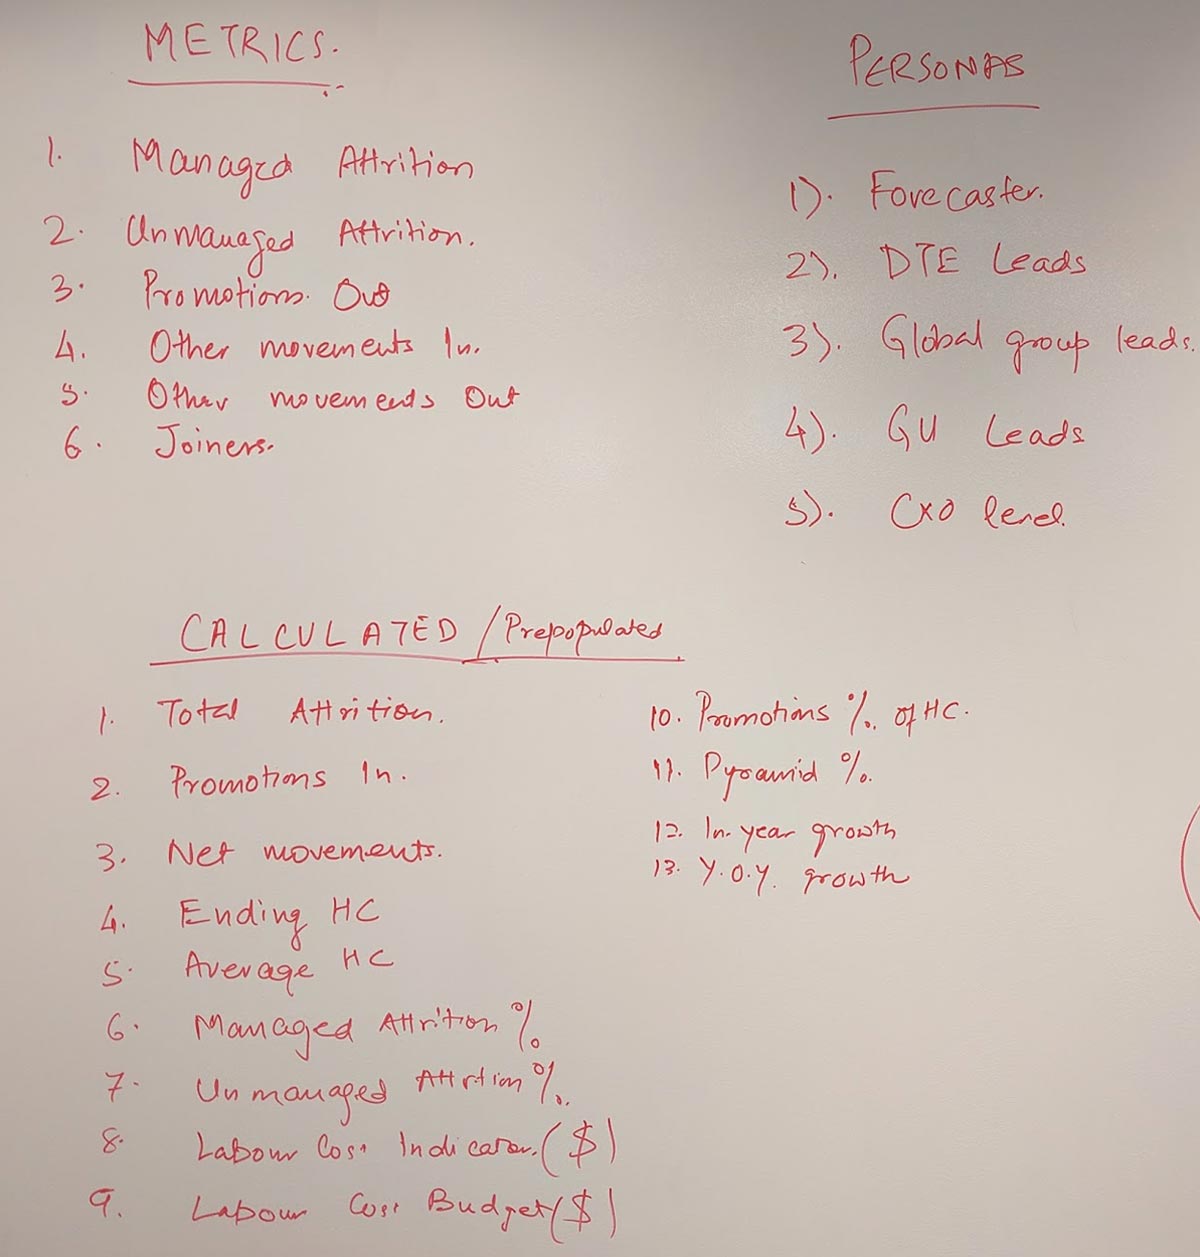 METRICS.
1. Managed Attrition
2. Unmanaged Attrition.
3. Promotions. Out
4. Other movements In.
5. Other movements Out
6. Joiners.
PERSONAS
1). Forecaster.
2). DTE Leads
3). Global group leads.
4). GU Leads
5). CXO level
CALCULATED / Prepopulated
1. Total Attrition.
2. Promotions In.
3. Net movements.
4. Ending HC
5. Average HC
6. Managed Attrition %
7. Unmanaged Attrtion %.
8. Labour Cost Indicator. ($)
9. Labour Cost Budget ($)
10. Promotions %. of HC.
11. Pyramid %.
12. In-year growth
13. Y.O.Y. growth